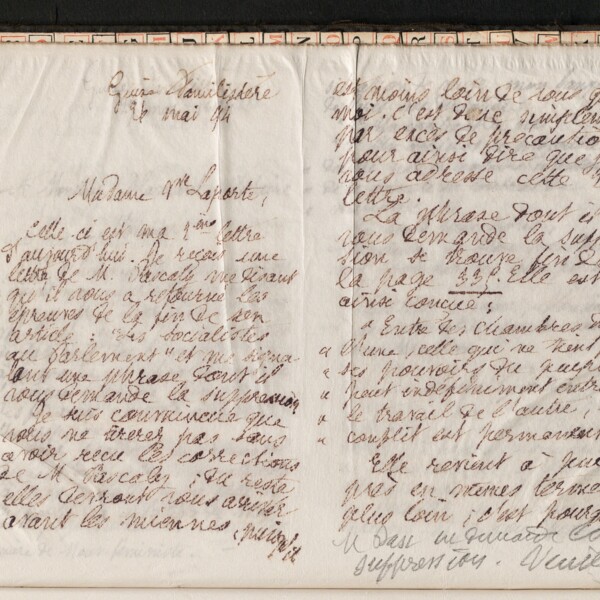 Guise Familistère
26 mai 94
Madame Vve Laporte,
Celle-ci est ma 2ème lettre
d'aujourd'hui. Je reçois une
lettre de M. Pascaly me disant
qu'il vous a retourné les
épreuves de la fin de son
article : "Les socialistes
au Parlement" et me signa-
lant une phrase dont il
vous demande la suppression.
Je suis convaincue que
vous ne tirerez pas sans
avoir reçu les corrections
de M. Pascaly ; du reste
elles devront vous arriver
avant les miennes, puisqu'il
est moins loin de vous que
moi. C'est donc simplement
par excès de précaution
pour ainsi dire que je
vous adresse cette
lettre.
La phrase dont il
vous demande la suppres-
sion se trouve fin de
la page 335. Elle est
ainsi conçue :
" Entre des chambres
" l'une, celle qui ne tient
" ses pouvoirs du peuple
" peut indéfiniment
" le travail de l'autre,
" conflit est permanent
Elle revient à peu
près en mêmes termes
plus loin ; c'est pourquoi
M. Pasc. en demande la
suppression. Veuillez